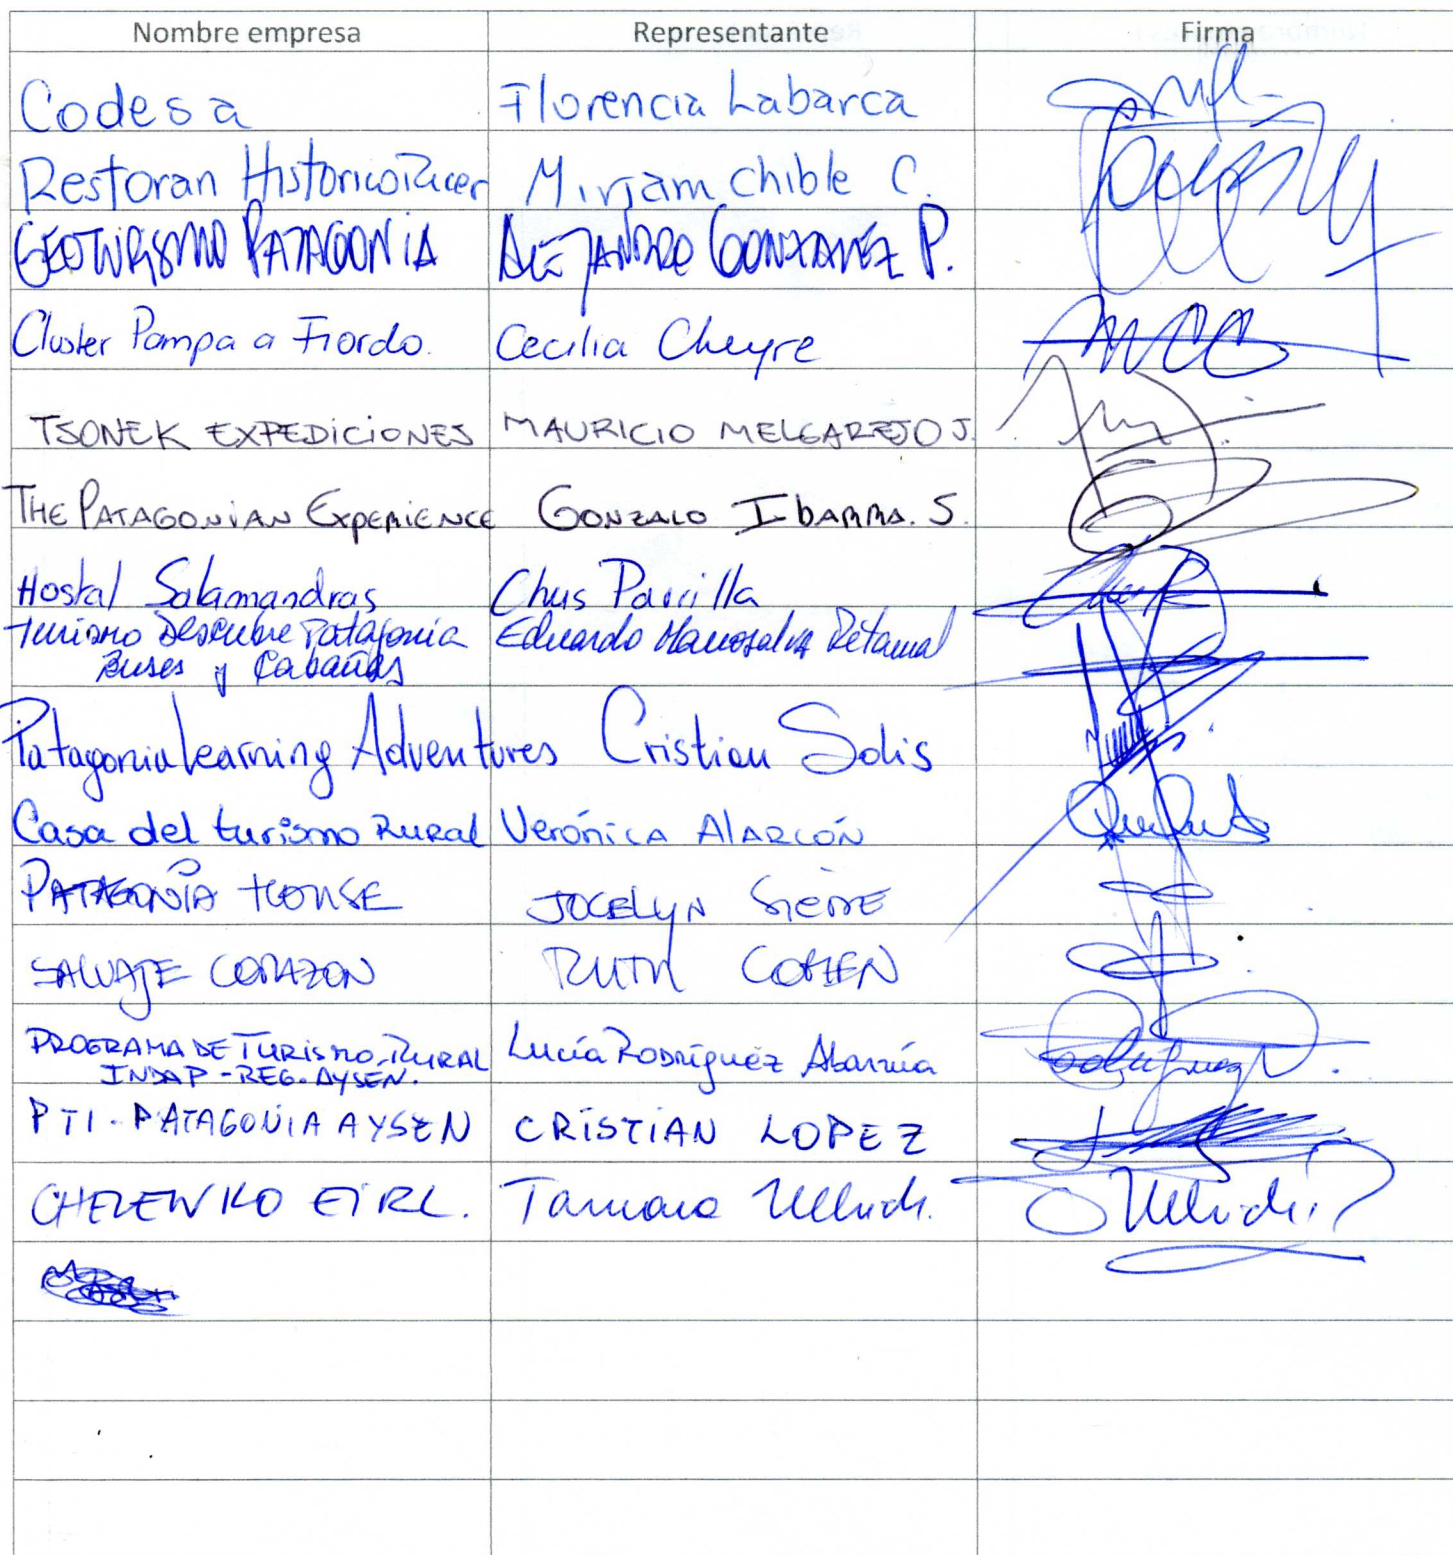 Nombre empresa Representante Firma
Codesa Florencia Labarca
Restoran Historico Ricer Mirjam Chible C.
GEOTURISMO PATAGONIA ALEJANDRO GONZALEZ P.
Cluster Pampa a Fiordo. Cecilia Cheyre
TSONEK EXPEDICIONES MAURICIO MELGAREJO J.
THE PATAGONIAN EXPERIENCE GONZALO IBARRA. S.
Hostal Salamandras Chus Parrilla
Turismo Descubre Patagonia Eduardo Manosalva Retamal
Buses y Cabañas
Patagonia Learning Adventures Cristian Solis
Casa del turismo Rural Verónica ALARCÓN
PATAGONIA HOUSE JOCELYN
SALVAJE CORAZON RUTH COHEN
PROGRAMA DE TURISMO RURAL Lucía Rodríguez Abarzúa
INDAP - REG. AYSEN.
PTI. PATAGONIA AYSEN CRISTIAN LOPEZ
CHELENKO EIRL. Tamara Ullrich.